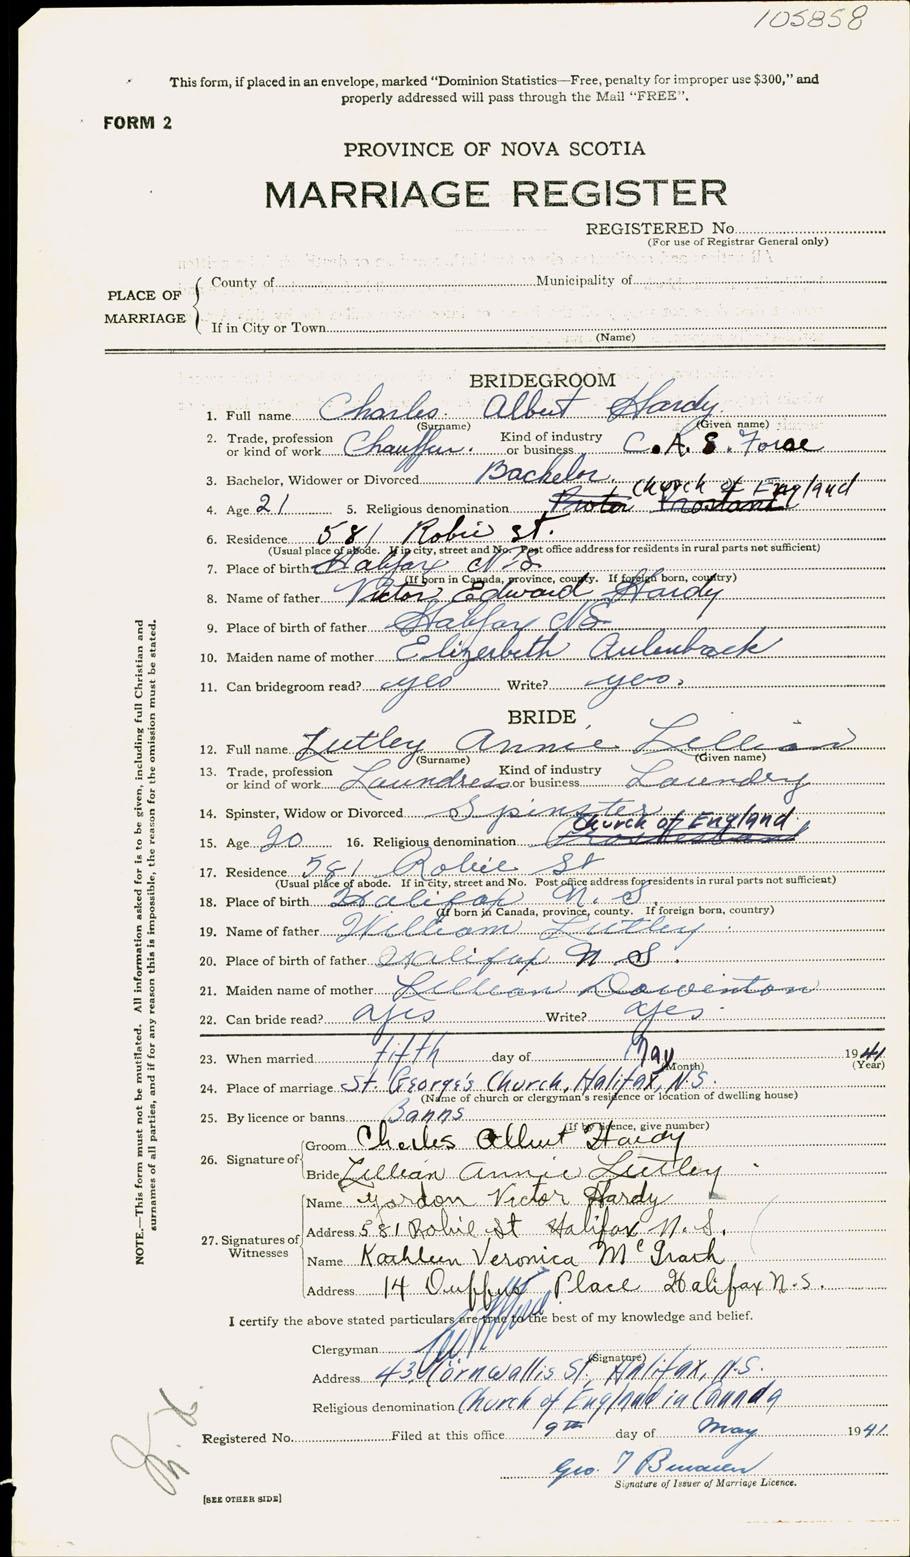 105858
This form, if placed in an envelope, marked "Dominion Statistics—Free, penalty for improper use $300," and
properly addressed will pass through the Mail "FREE".
FORM 2
PROVINCE OF NOVA SCOTIA
MARRIAGE REGISTER
REGISTERED No.
(For use of Registrar General only)
PLACE OF MARRIAGE
County of Municipality of
If in City or Town
(Name)
BRIDEGROOM
1. Full name Charles Albert Hardy
(Surname) (Given name)
2. Trade, profession or kind of work Chauffur. Kind of industry or business C.A.S. Force
3. Bachelor, Widower or Divorced Bachelor.
4. Age 21 5. Religious denomination Church of England
6. Residence 581 Robie St.
(Usual place of abode. If in city, street and No. Post office address for residents in rural parts not sufficient)
7. Place of birth Halifax N.S.
(If born in Canada, province, county. If foreign born, country)
8. Name of father Victor Edward Hardy
9. Place of birth of father Halifax NS
10. Maiden name of mother Elizerbeth Aulenback
11. Can bridegroom read? yes Write? yes.
BRIDE
12. Full name Lutley Annie Lillian
(Surname) (Given name)
13. Trade, profession or kind of work Laundress Kind of industry or business Laundry
14. Spinster, Widow or Divorced Spinster
15. Age 20 16. Religious denomination Church of England
17. Residence 581 Robie St
(Usual place of abode. If in city, street and No. Post office address for residents in rural parts not sufficient)
18. Place of birth Halifax N.S.
(If born in Canada, province, county. If foreign born, country)
19. Name of father William Lutley
20. Place of birth of father Halifax N.S.
21. Maiden name of mother Lillian Dowenton
22. Can bride read? yes Write? yes.
23. When married fifth day of May 1941
(Month) (Year)
24. Place of marriage St. George's Church, Halifax, N.S.
(Name of church or clergyman's residence or location of dwelling house)
25. By licence or banns Banns
(If by licence, give number)
26. Signature of
Groom Charles Albert Hardy
Bride Lillian Annie Lutley
27. Signatures of Witnesses
Name Gordon Victor Hardy
Address 581 Robie St Halifax N.S.
Name Kathleen Veronica McGrath
Address 14 Duffus Place Halifax N.S.
I certify the above stated particulars are true to the best of my knowledge and belief.
Clergyman
(Signature)
Address 43 Cornwallis St., Halifax, N.S.
Religious denomination Church of England in Canada
Registered No. Filed at this office 9th day of May 1941
Geo. T
Signature of Issuer of Marriage Licence.
[SEE OTHER SIDE]
NOTE.—This form must not be mutilated. All information asked for is to be given, including full Christian and
surnames of all parties, and if for any reason this is impossible, the reason for the omission must be stated.